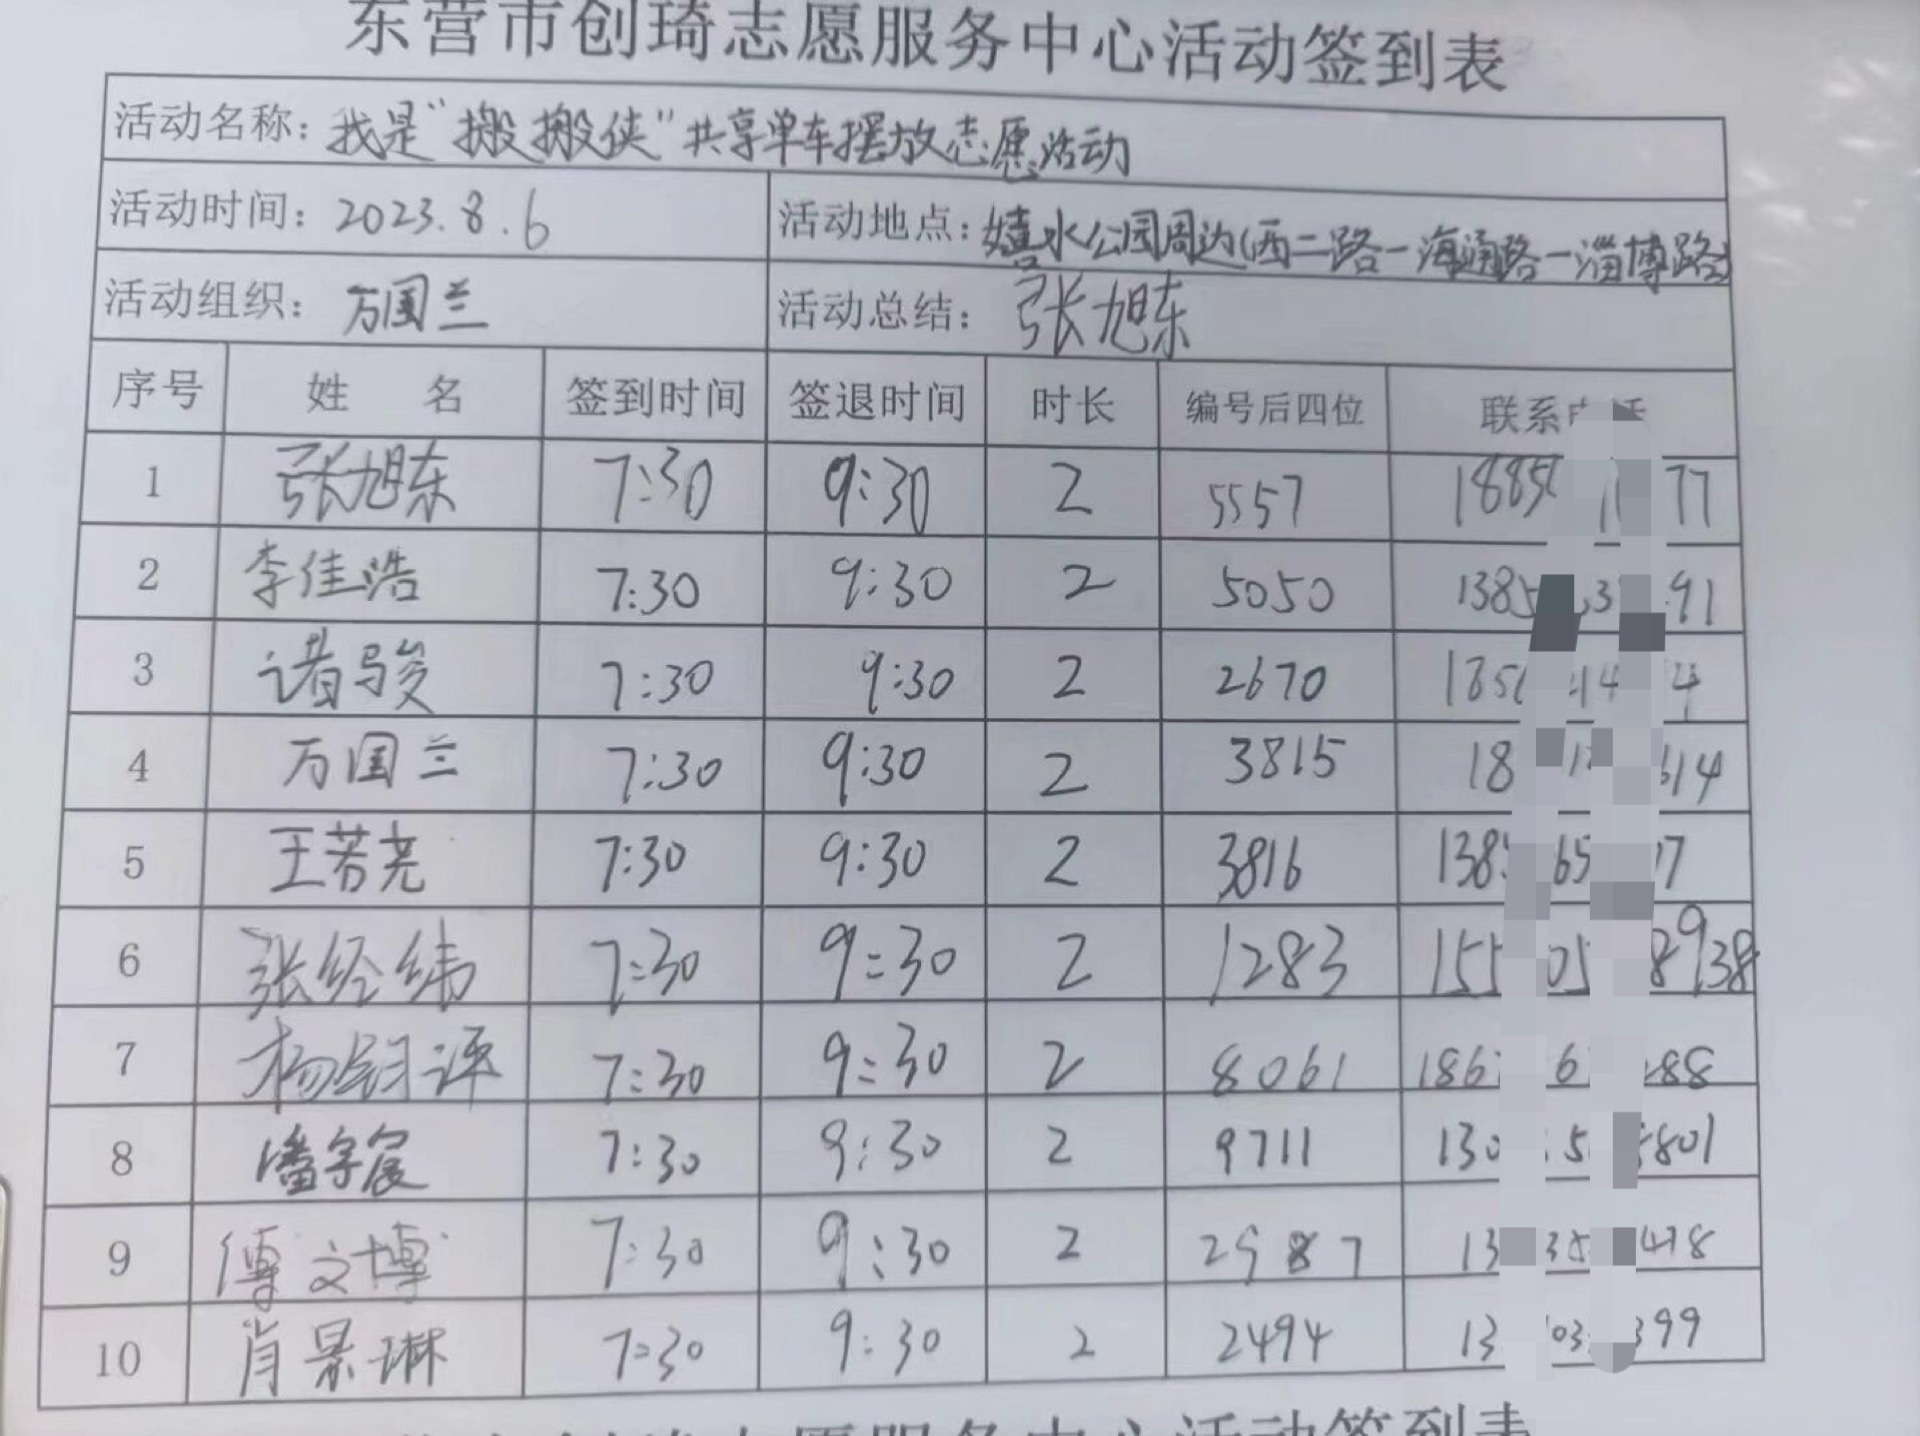 东营市创琦志愿服务中心活动签到表
活动名称：我是"搬搬侠"共享单车摆放志愿活动
活动时间：2023.8.6 活动地点：嬉水公园周边(西二路-海通路-淄博路)
活动组织：万国兰 活动总结：张旭东
序号 姓 名 签到时间 签退时间 时长 编号后四位 联系
1 张旭东 7:30 9:30 2 5557 1885 77
2 李佳浩 7:30 9:30 2 5050 1385 3 91
3 诸骏 7:30 9:30 2 2670 185 14 4
4 万国兰 7:30 9:30 2 3815 18 1 614
5 王若尧 7:30 9:30 2 3816 138 65 7
6 张经纬 7:30 9:30 2 1283 155 05 8938
7 杨钧评 7:30 9:30 2 8061 186 6 88
8 潘宇宸 7:30 9:30 2 9711 130 5 801
9 傅文博 7:30 9:30 2 2987 13 35 418
10 肖景琳 7:30 9:30 2 2494 13 03 399
志愿服务中心活动签到表